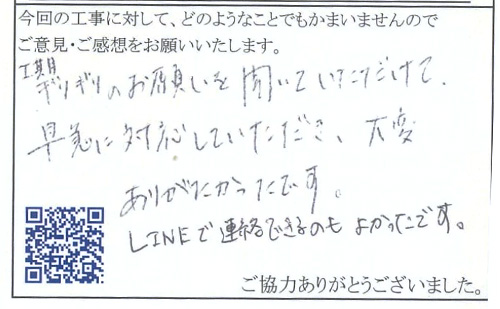 今回の工事に対して、どのようなことでもかまいませんので
ご意見・ご感想をお願いいたします。
工期ギリギリのお願いを聞いていただけて、
早急に対応していただき、大変
ありがたかったです。
LINEで連絡できるのもよかったです。
ご協力ありがとうございました。